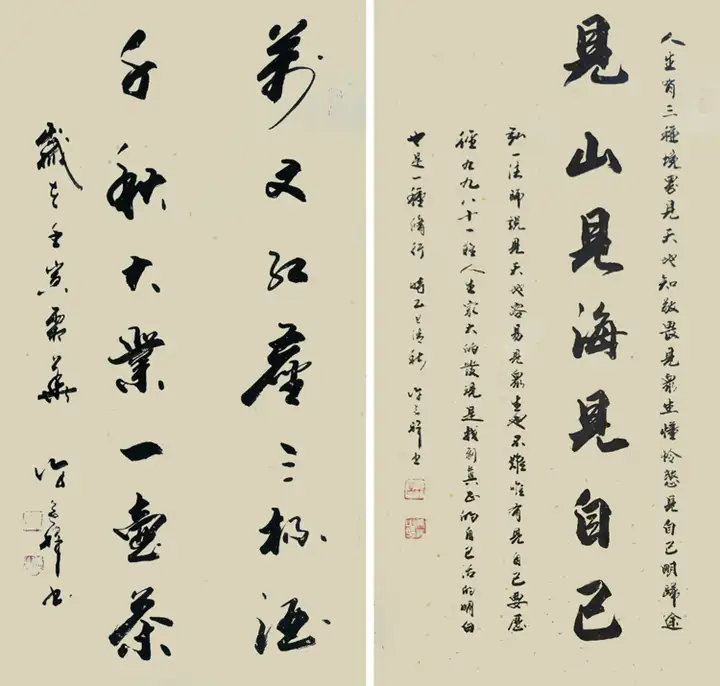 萬丈红塵三杯酒
千秋大業一壺茶
歲在壬寅霜華
書
人生有三種境界見天地知敬畏見衆生懂怜愍見自己明歸途
見山見海見自己
弘一法師説見天地容易見衆生也不難唯有見自己要歷
經九九八十一難人生最大的發現是找到真正的自己活的明白
也是一種修行 時乙巳清秋 書